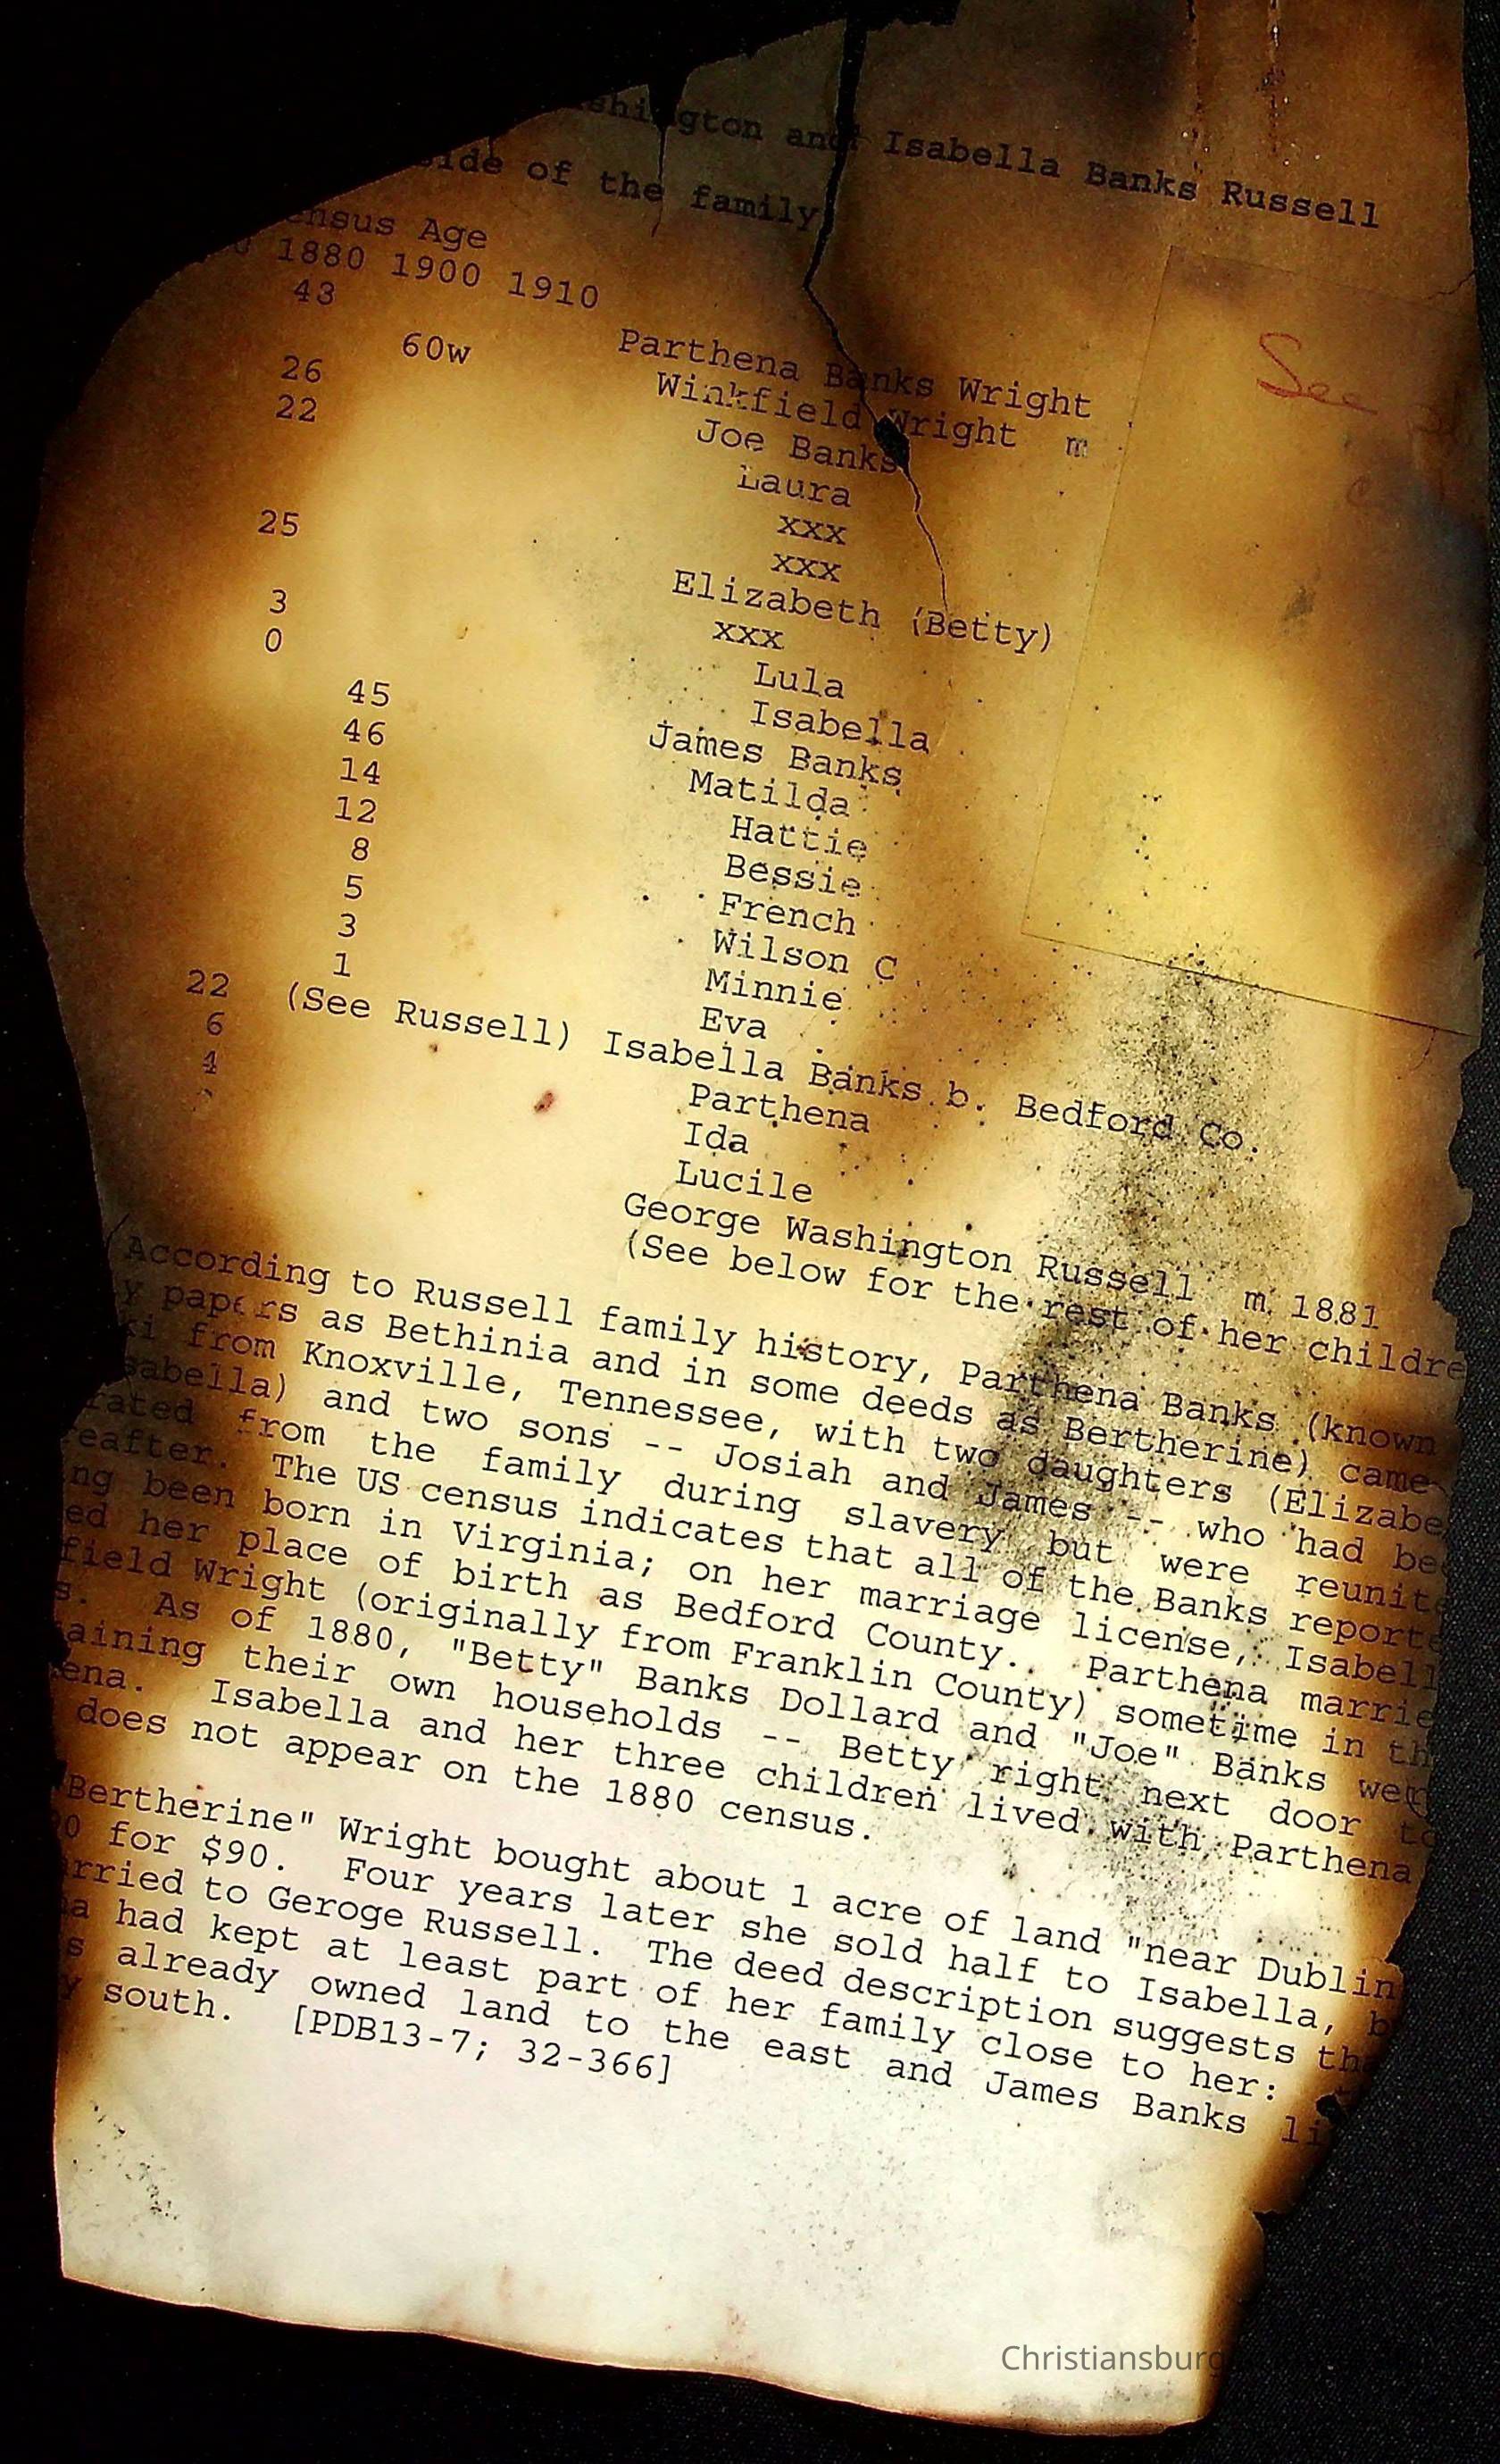 and Isabella Banks Russell
side of the family
Census Age
1880 1900 1910
43 Parthena Banks Wright
60w Winkfield Wright m
26 Joe Banks
22 Laura
xxx
xxx
25 Elizabeth (Betty)
xxx
3 Lula
0 Isabella
45 James Banks
46 Matilda
14 Hattie
12 Bessie
8 French
5 Wilson C
3 Minnie
1 Eva
22 (See Russell) Isabella Banks b. Bedford Co.
6 Parthena
4 Ida
Lucile
George Washington Russell m. 1881
(See below for the rest of her childre
See
(According to Russell family history, Parthena Banks (known
y papers as Bethinia and in some deeds as Bertherine) came
ki from Knoxville, Tennessee, with two daughters (Elizabe
sabella) and two sons -- Josiah and James -- who had be
rated from the family during slavery but were reunite
reafter. The US census indicates that all of the Banks reporte
ng been born in Virginia; on her marriage license, Isabell
ed her place of birth as Bedford County. Parthena marrie
field Wright (originally from Franklin County) sometime in th
s. As of 1880, "Betty" Banks Dollard and "Joe" Banks wer
aining their own households -- Betty right next door to
ena. Isabella and her three children lived with Parthena
does not appear on the 1880 census.
"Bertherine" Wright bought about 1 acre of land "near Dublin
0 for $90. Four years later she sold half to Isabella, b
rried to Geroge Russell. The deed description suggests th
a had kept at least part of her family close to her:
s already owned land to the east and James Banks li
y south. [PDB13-7; 32-366]
Christiansburg